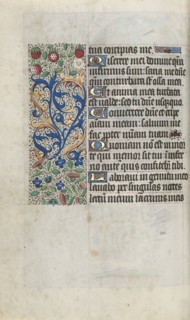 tua corripias me.
Miserere mei domine quoniam
infirmus sum: sana me domine
quoniam conturbata sunt ossa mea.
Et anima mea turbata
est valde: sed tu domine usquequo.
Convertere domine et eripe
animam meam: salvum me
fac propter misericordiam tuam.
Quoniam non est in morte
qui memor sit tui: in infer
no autem quis confitebitur tibi.
Laboravi in gemitu meo
lavabo per singulas noctes
lectum meum: lacrimis meis